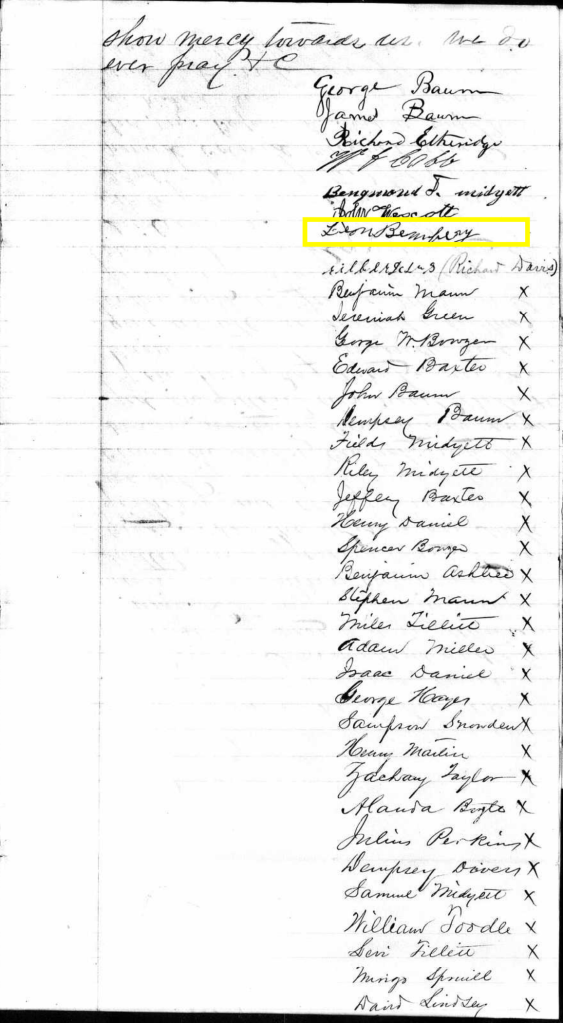 show mercy towards us. we do
ever pray. & C
George Baum
James Baum
Richard Etheridge
W F Cobb
Bengmond T. midyett
John Wescott
Leon Bembery
(Richard Davis)
Benjaim Mann X
Jeremiah Green X
George W. Bowzer X
Edward Baxter X
John Baum X
Dempsey Baum X
Fields Midyett X
Riley Midyett X
Jeffery Baxter X
Henry Daniel X
Spencer Bowzer X
Benjamin X
Stephen Mann X
Miles Tillitt X
Adam Miller X
Isaac Daniel X
George Hayes X
Sampson Snowden X
Henry Martin X
Zachary Taylor X
Alanda X
Julius Perkins X
Dempsey X
Samuel Midyett X
William Toodle X
Levi Tillett X
Mingo Spruill X
David Lindsey X